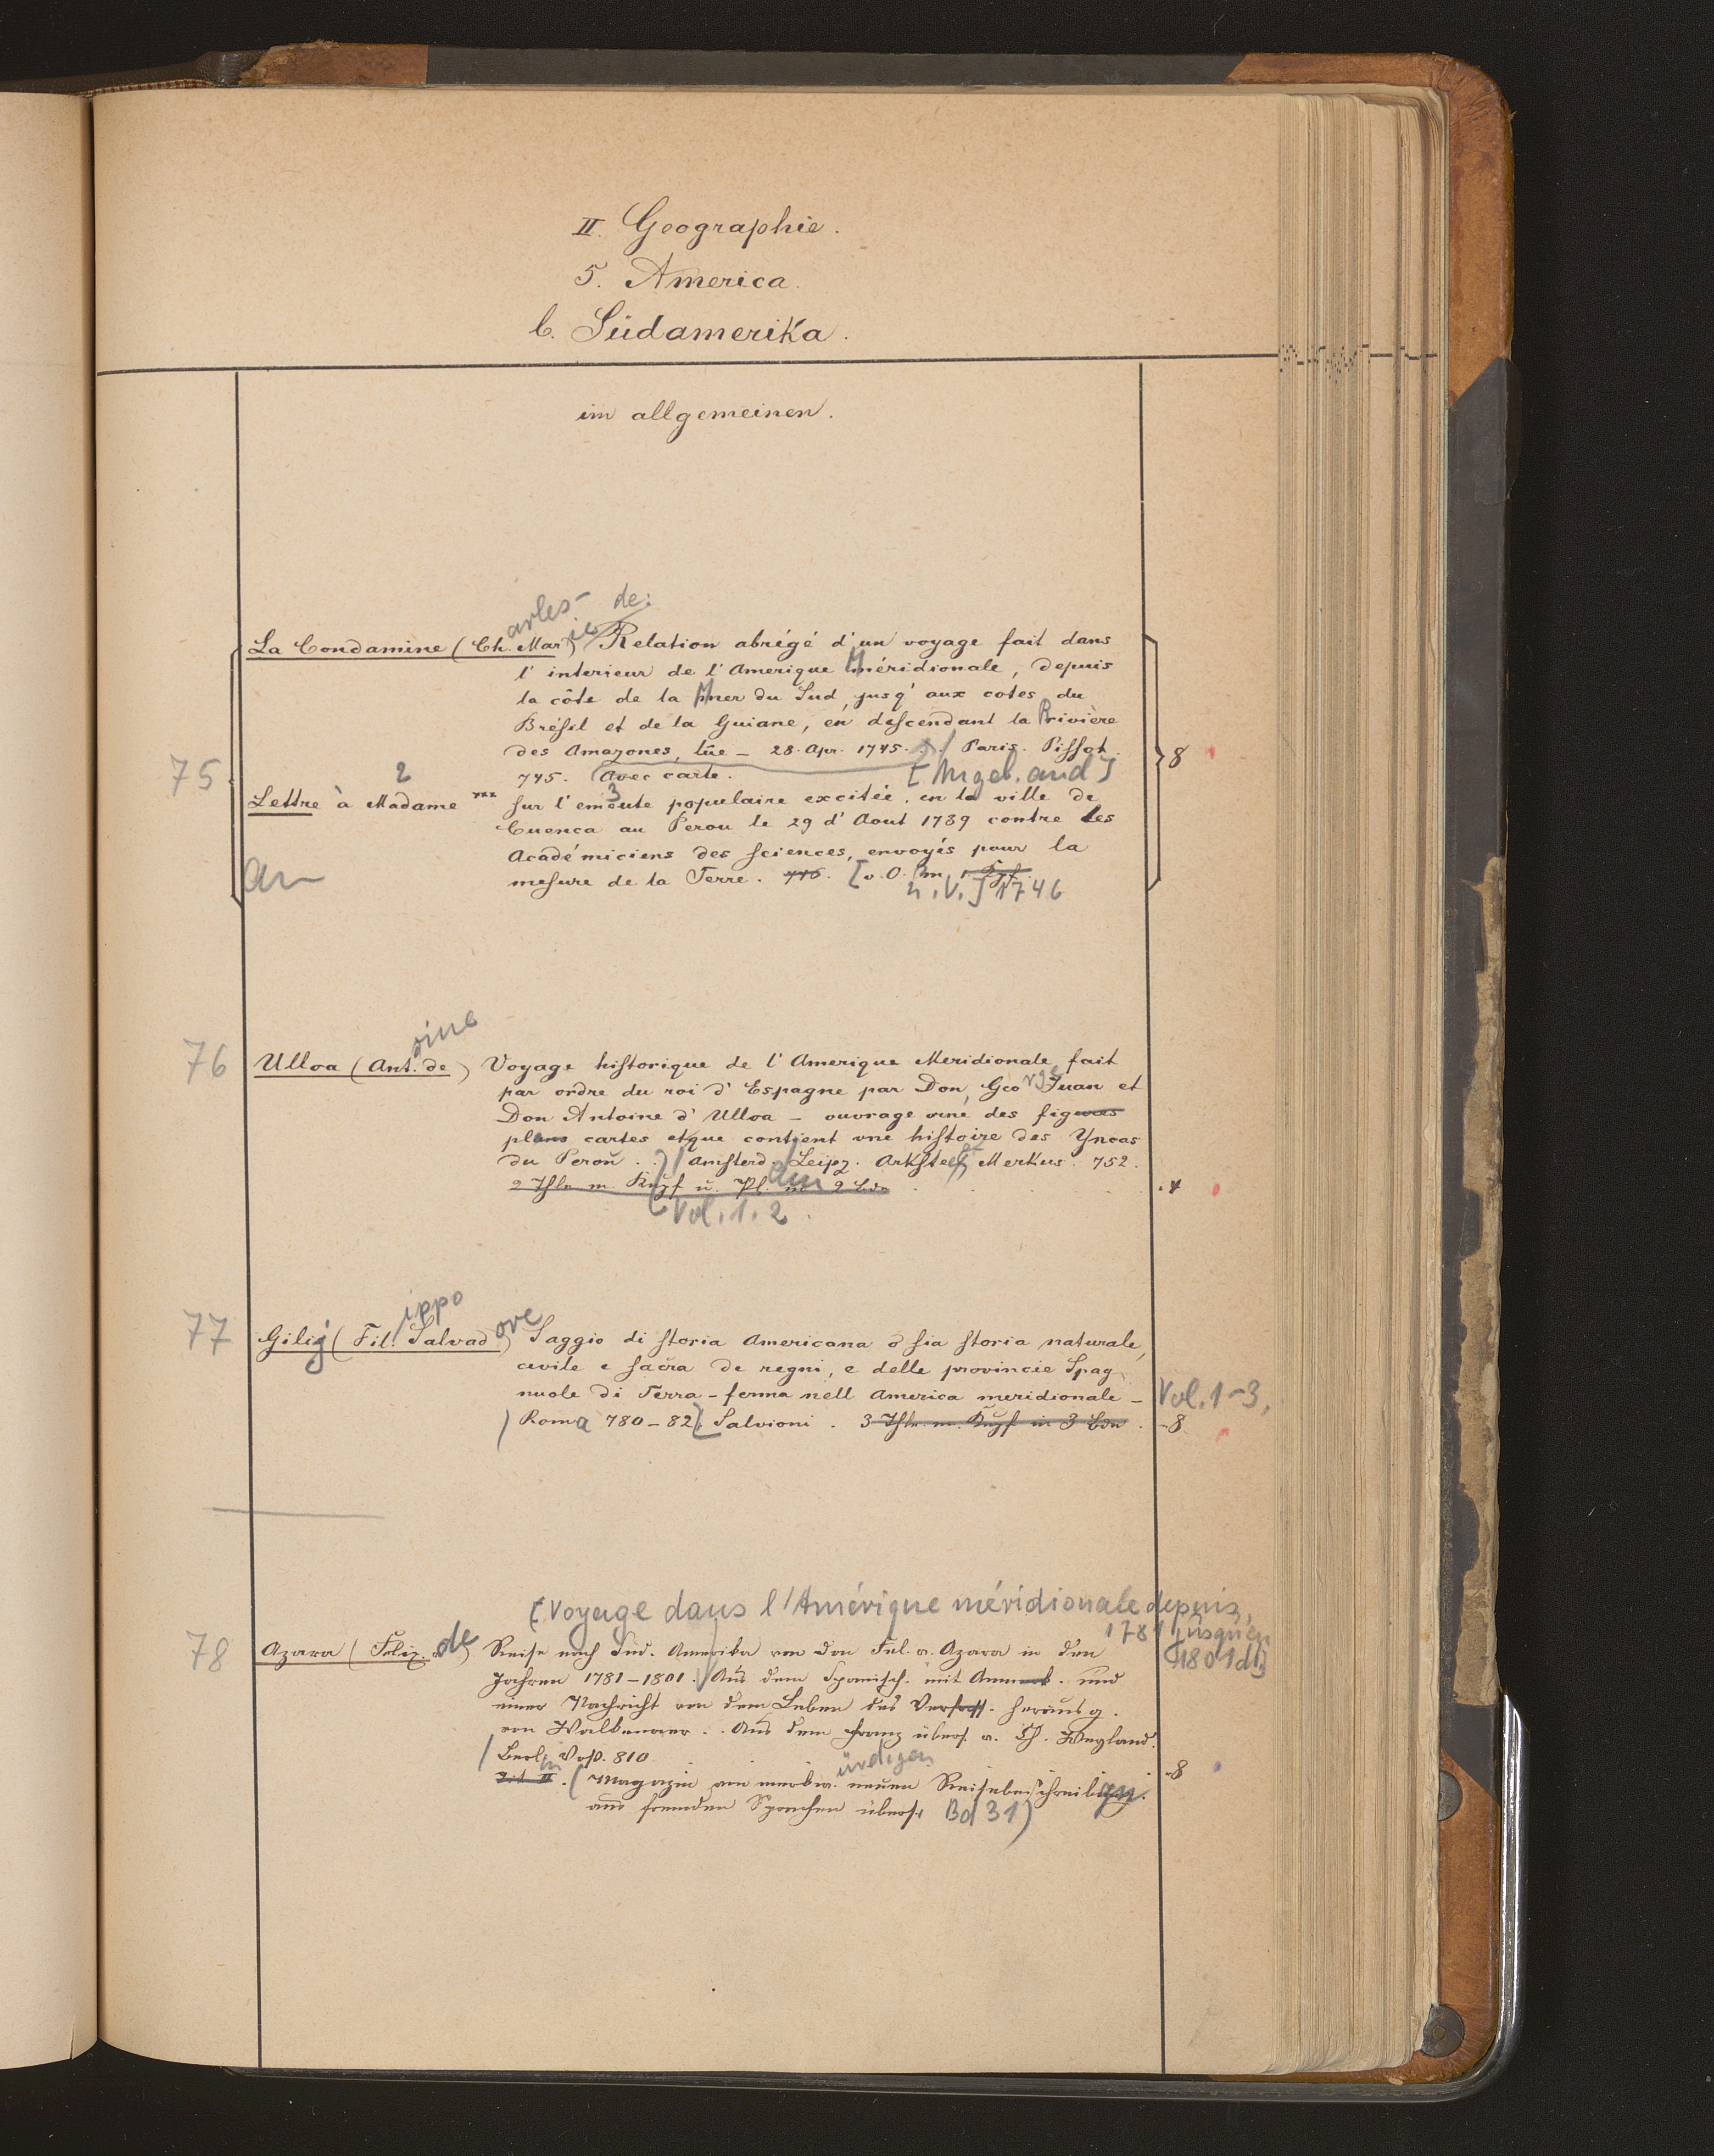 II. Geographie.
5. America.
b. Südamerika.
im allgemeinen.
arles- de:
La Condamine (Ch. Mar ie) Relation abrégé d'un voyage fait dans
l'interieur de l'Amerique Méridionale, depuis
la côte de la Mer du Sud, jusq' aux cotes du
Brésil et de la Guiane, en descendant la Rivière
des Amazones, lûe – 28. Apr. 1745. Paris. Pissot.
75 745. (Avec carte. [Angeb. and] 8
2 3
Lettre à Madame *** sur l'emeute populaire excitée, en la ville de
Cuenca au Perou le 29 d'Aout 1739 contre les
Académiciens des sciences, envoyés pour la
an mesure de la Terre. 746. [o. O. m. 1 Kpf.
u. V.] 1746
oine
76 Ulloa (Ant. de) Voyage historique de l'Amerique Meridionale fait
par ordre du roi d'Espagne par Don, George Juan et
Don Antoine d'Ulloa – ouvrage orné des figures
plans cartes et que contient une histoire des Yncas
du Perou. Amsterd. Leipz. Arkstee & Merkus. 752.
2 Thle m. Kupf u. Pl. in 2 Bdn 4
Vol. 1. 2.
ippo
77 Gilij (Fil. Salvad ore) Saggio di storia Americana o sia storia naturale,
civile e sacra de regni, e delle provincie Spag
nuole di Terra-ferma nell America meridionale – Vol. 1-3,
Roma 780–82. Salvioni. 3 Thle m. Kupf in 3 Bdn. 8
[Voyage dans l'Amérique méridionale depuis
1781 jusqu'en
1801 dt.]
78 Azara (Felix de) Reise nach Süd. Amerika von Don Fel. v. Azara in den
Jahren 1781–1801. Aus dem Spanisch. mit Anmerk. und
einer Nachricht von dem Leben des Verfass. herausg.
von Walkenaer. Aus dem Franz übers. v. Ch. Weyland.
Berlin Voß. 810 8
ürdigen
Tit II. (Magazin von merkw. neuen Reisebeschreibungen
aus fremden Sprachen übers. Bd 31)